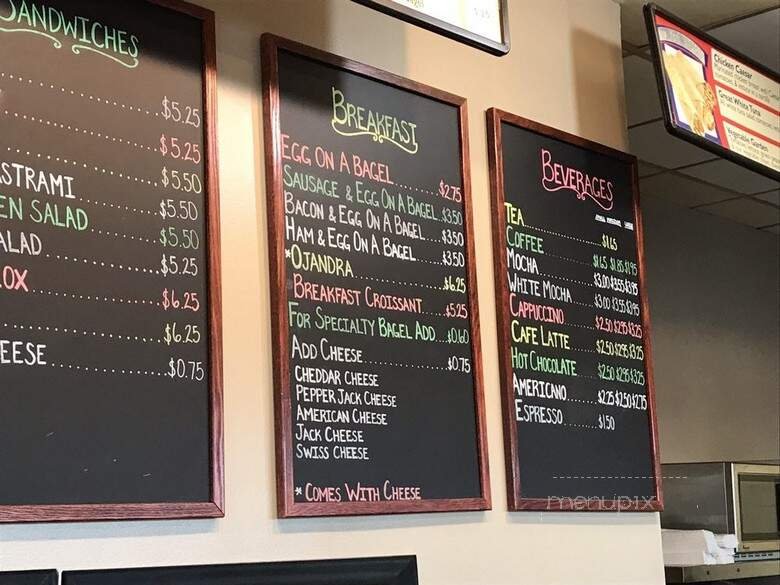 SANDWICHES
$5.25
$5.25
$5.50
ASTRAMI $5.50
EN SALAD $5.50
ALAD $5.25
OX $6.25
$6.25
EESE $0.75
BREAKFAST
EGG ON A BAGEL $2.75
SAUSAGE & EGG ON A BAGEL $3.50
BACON & EGG ON A BAGEL $3.50
HAM & EGG ON A BAGEL $3.50
*OJANDRA $6.25
BREAKFAST CROISSANT $5.25
FOR SPECIALTY BAGEL ADD $0.60
ADD CHEESE $0.75
CHEDDAR CHEESE
PEPPER JACK CHEESE
AMERICAN CHEESE
JACK CHEESE
SWISS CHEESE
* COMES WITH CHEESE
BEVERAGES
TEA $1.65
COFFEE $1.65 $1.85 $1.95
MOCHA $3.00 $3.55 $3.95
WHITE MOCHA $3.00 $3.55 $3.95
CAPPUCCINO $2.50 $2.95 $3.25
CAFE LATTE $2.50 $2.95 $3.25
HOT CHOCOLATE $2.50 $2.95 $3.25
AMERICANO $2.25 $2.50 $2.75
ESPRESSO $1.50
Chicken Caesar
Great White Tuna
Vegetable Garden
menupix